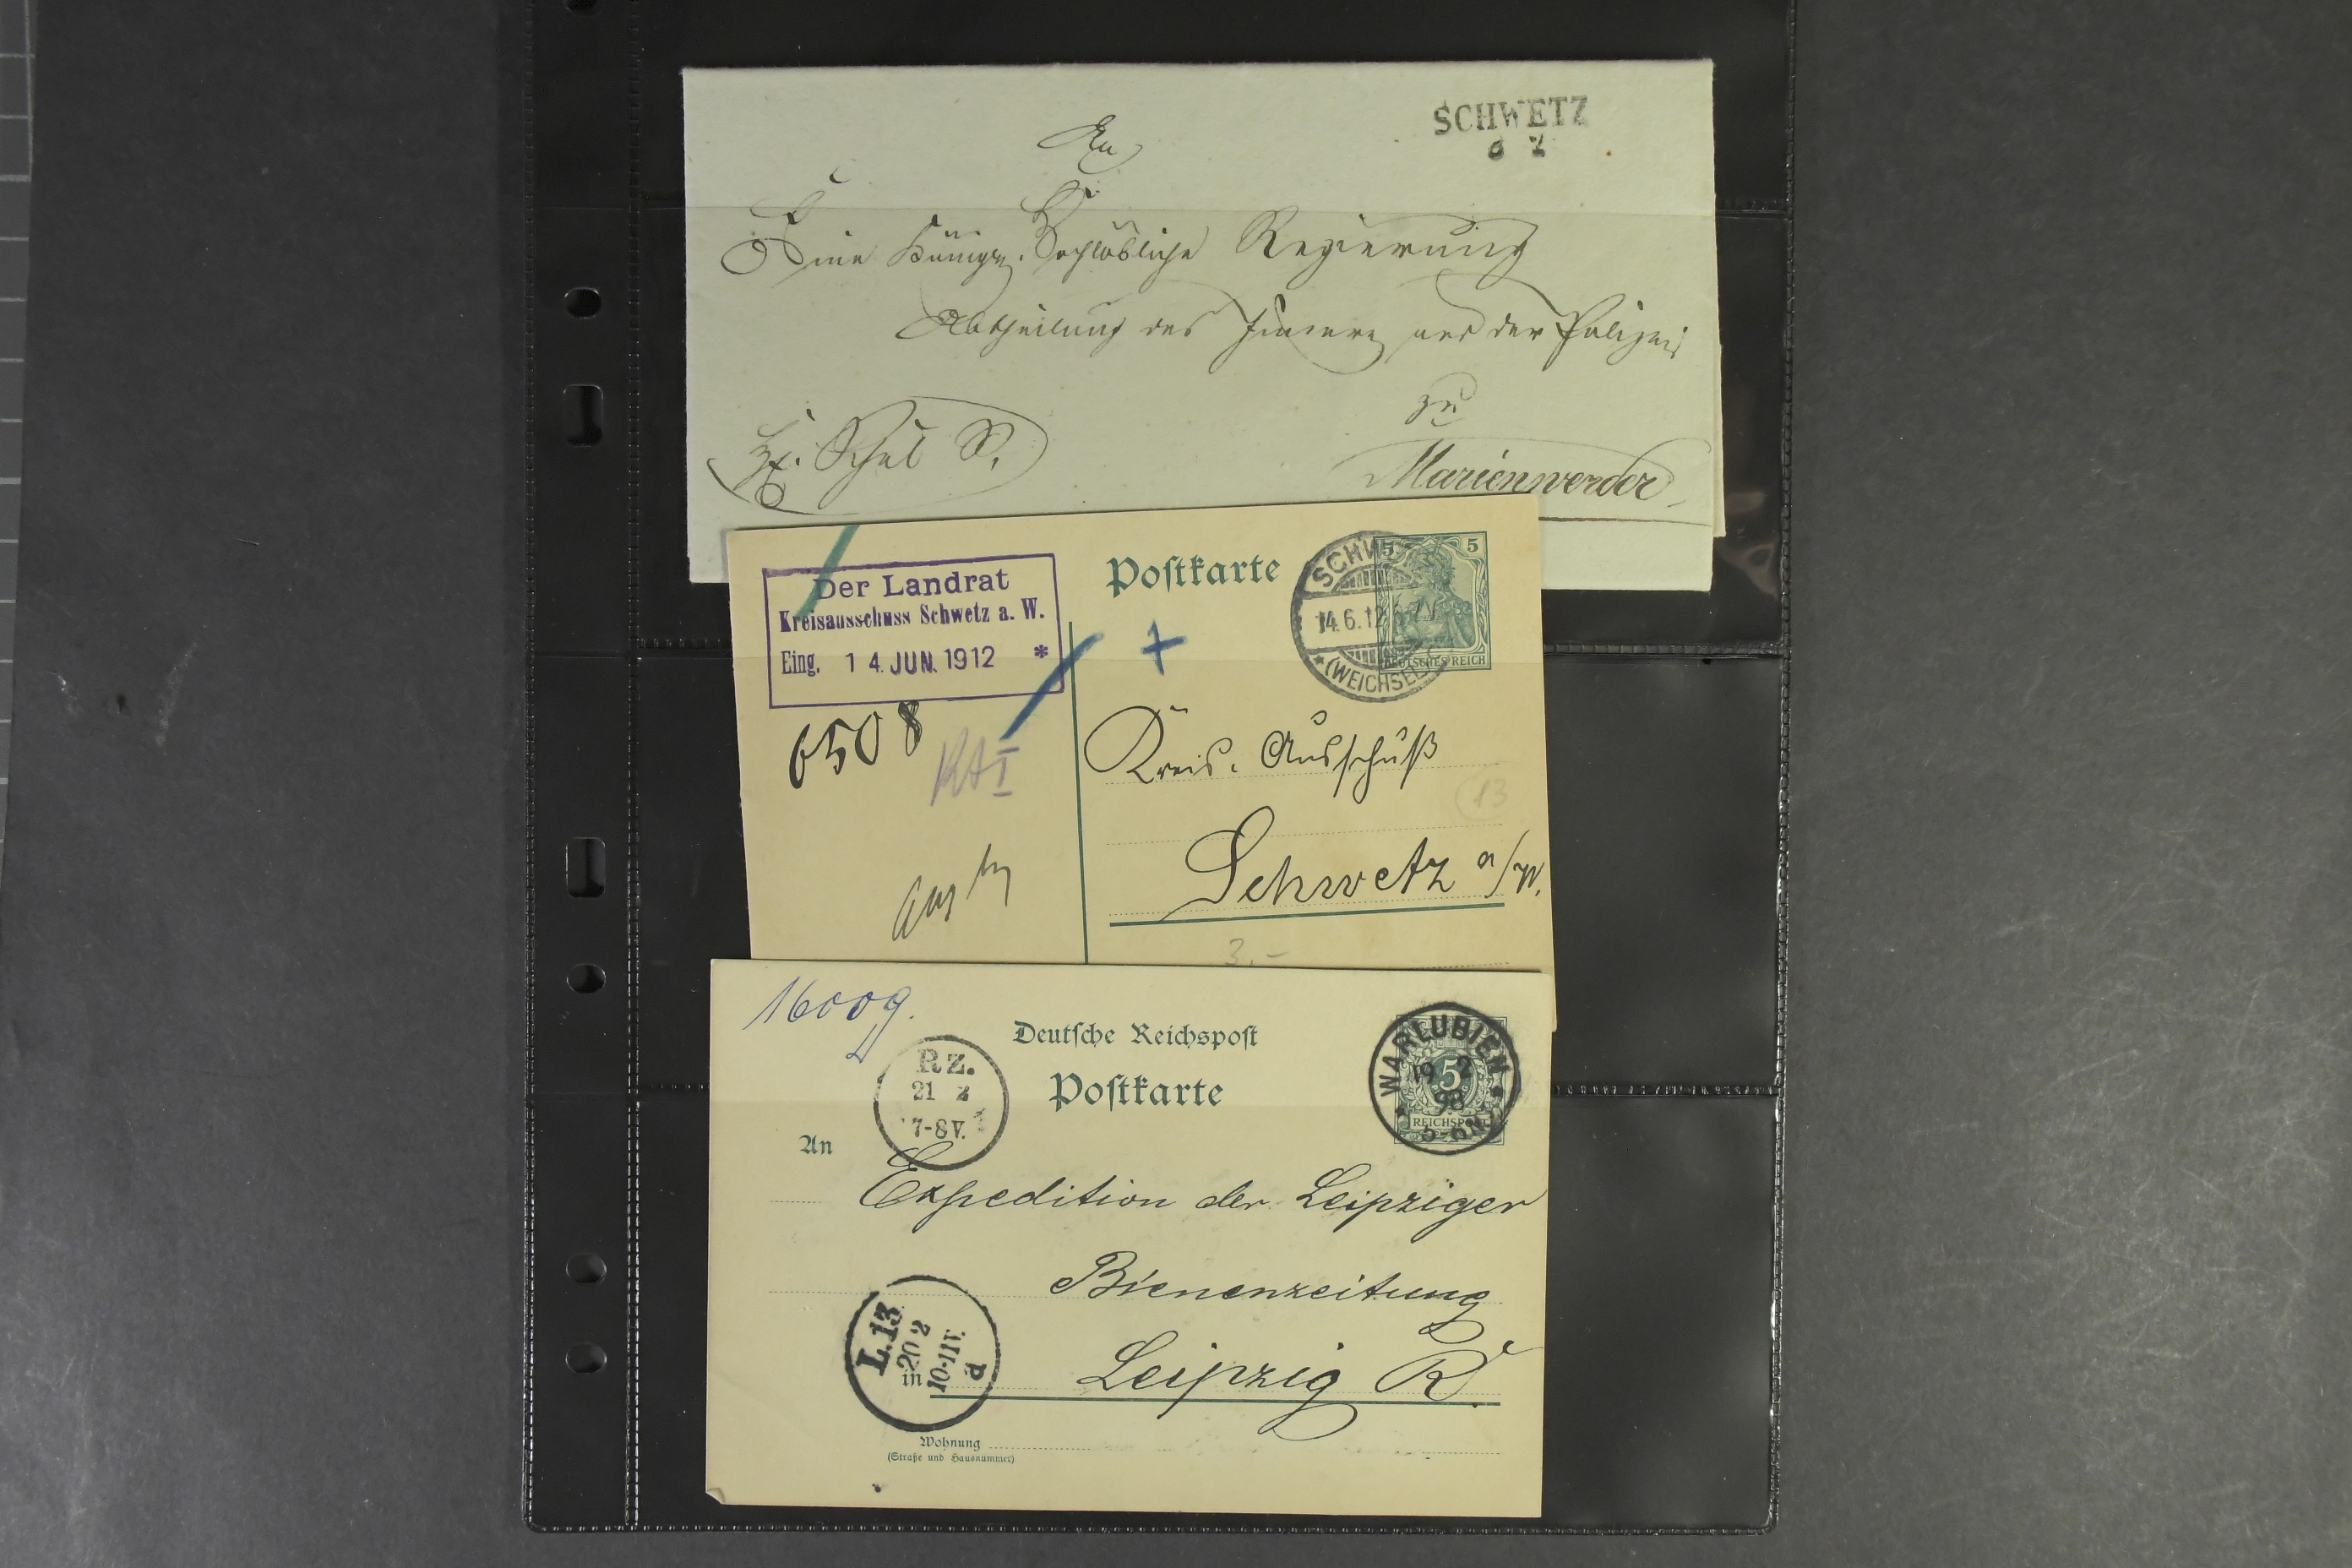 SCHWETZ
6 7
An
Eine Königl. Hochlöbliche Regierung
Abtheilung des Innern und der Polizei
zu
Marienwerder
Der Landrat
Kreisausschuss Schwetz a. W.
Eing. 14. JUN. 1912 *
Postkarte
SCHWETZ
14.6.12
* (WEICHSEL)
5 5
DEUTSCHES REICH
6508
KAI
Kreis-Ausschuß
13
Schwetz a/W.
3.-
16009.
Deutsche Reichspost
Postkarte
Rz.
21 2
7-8V.
WARLUBIEN
19 2
98
5-6N
5
REICHSPOST
An
Expedition der Leipziger
Bienenzeitung
L.13
20 2
10-11V.
d
in
Leipzig R.
Wohnung
(Straße und Hausnummer)